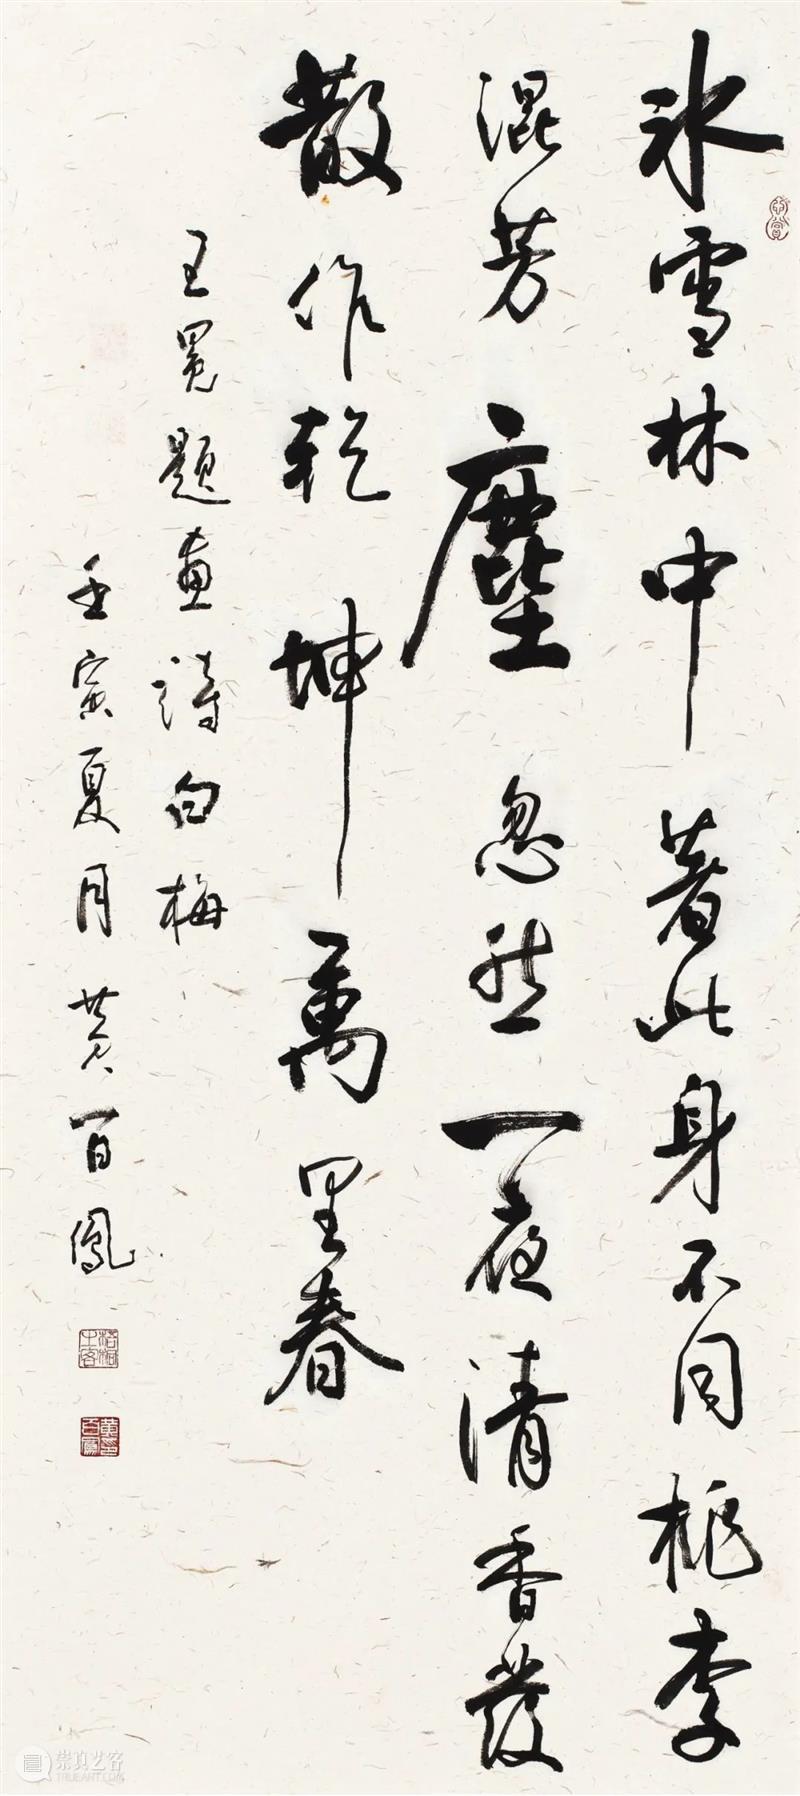 冰雪林中著此身不同桃李
混芳塵忽然一夜清香發
散作乾坤萬里春
王冕題画詩白梅
壬寅夏月黄百鳳
崇真艺客
TRUEART.COM